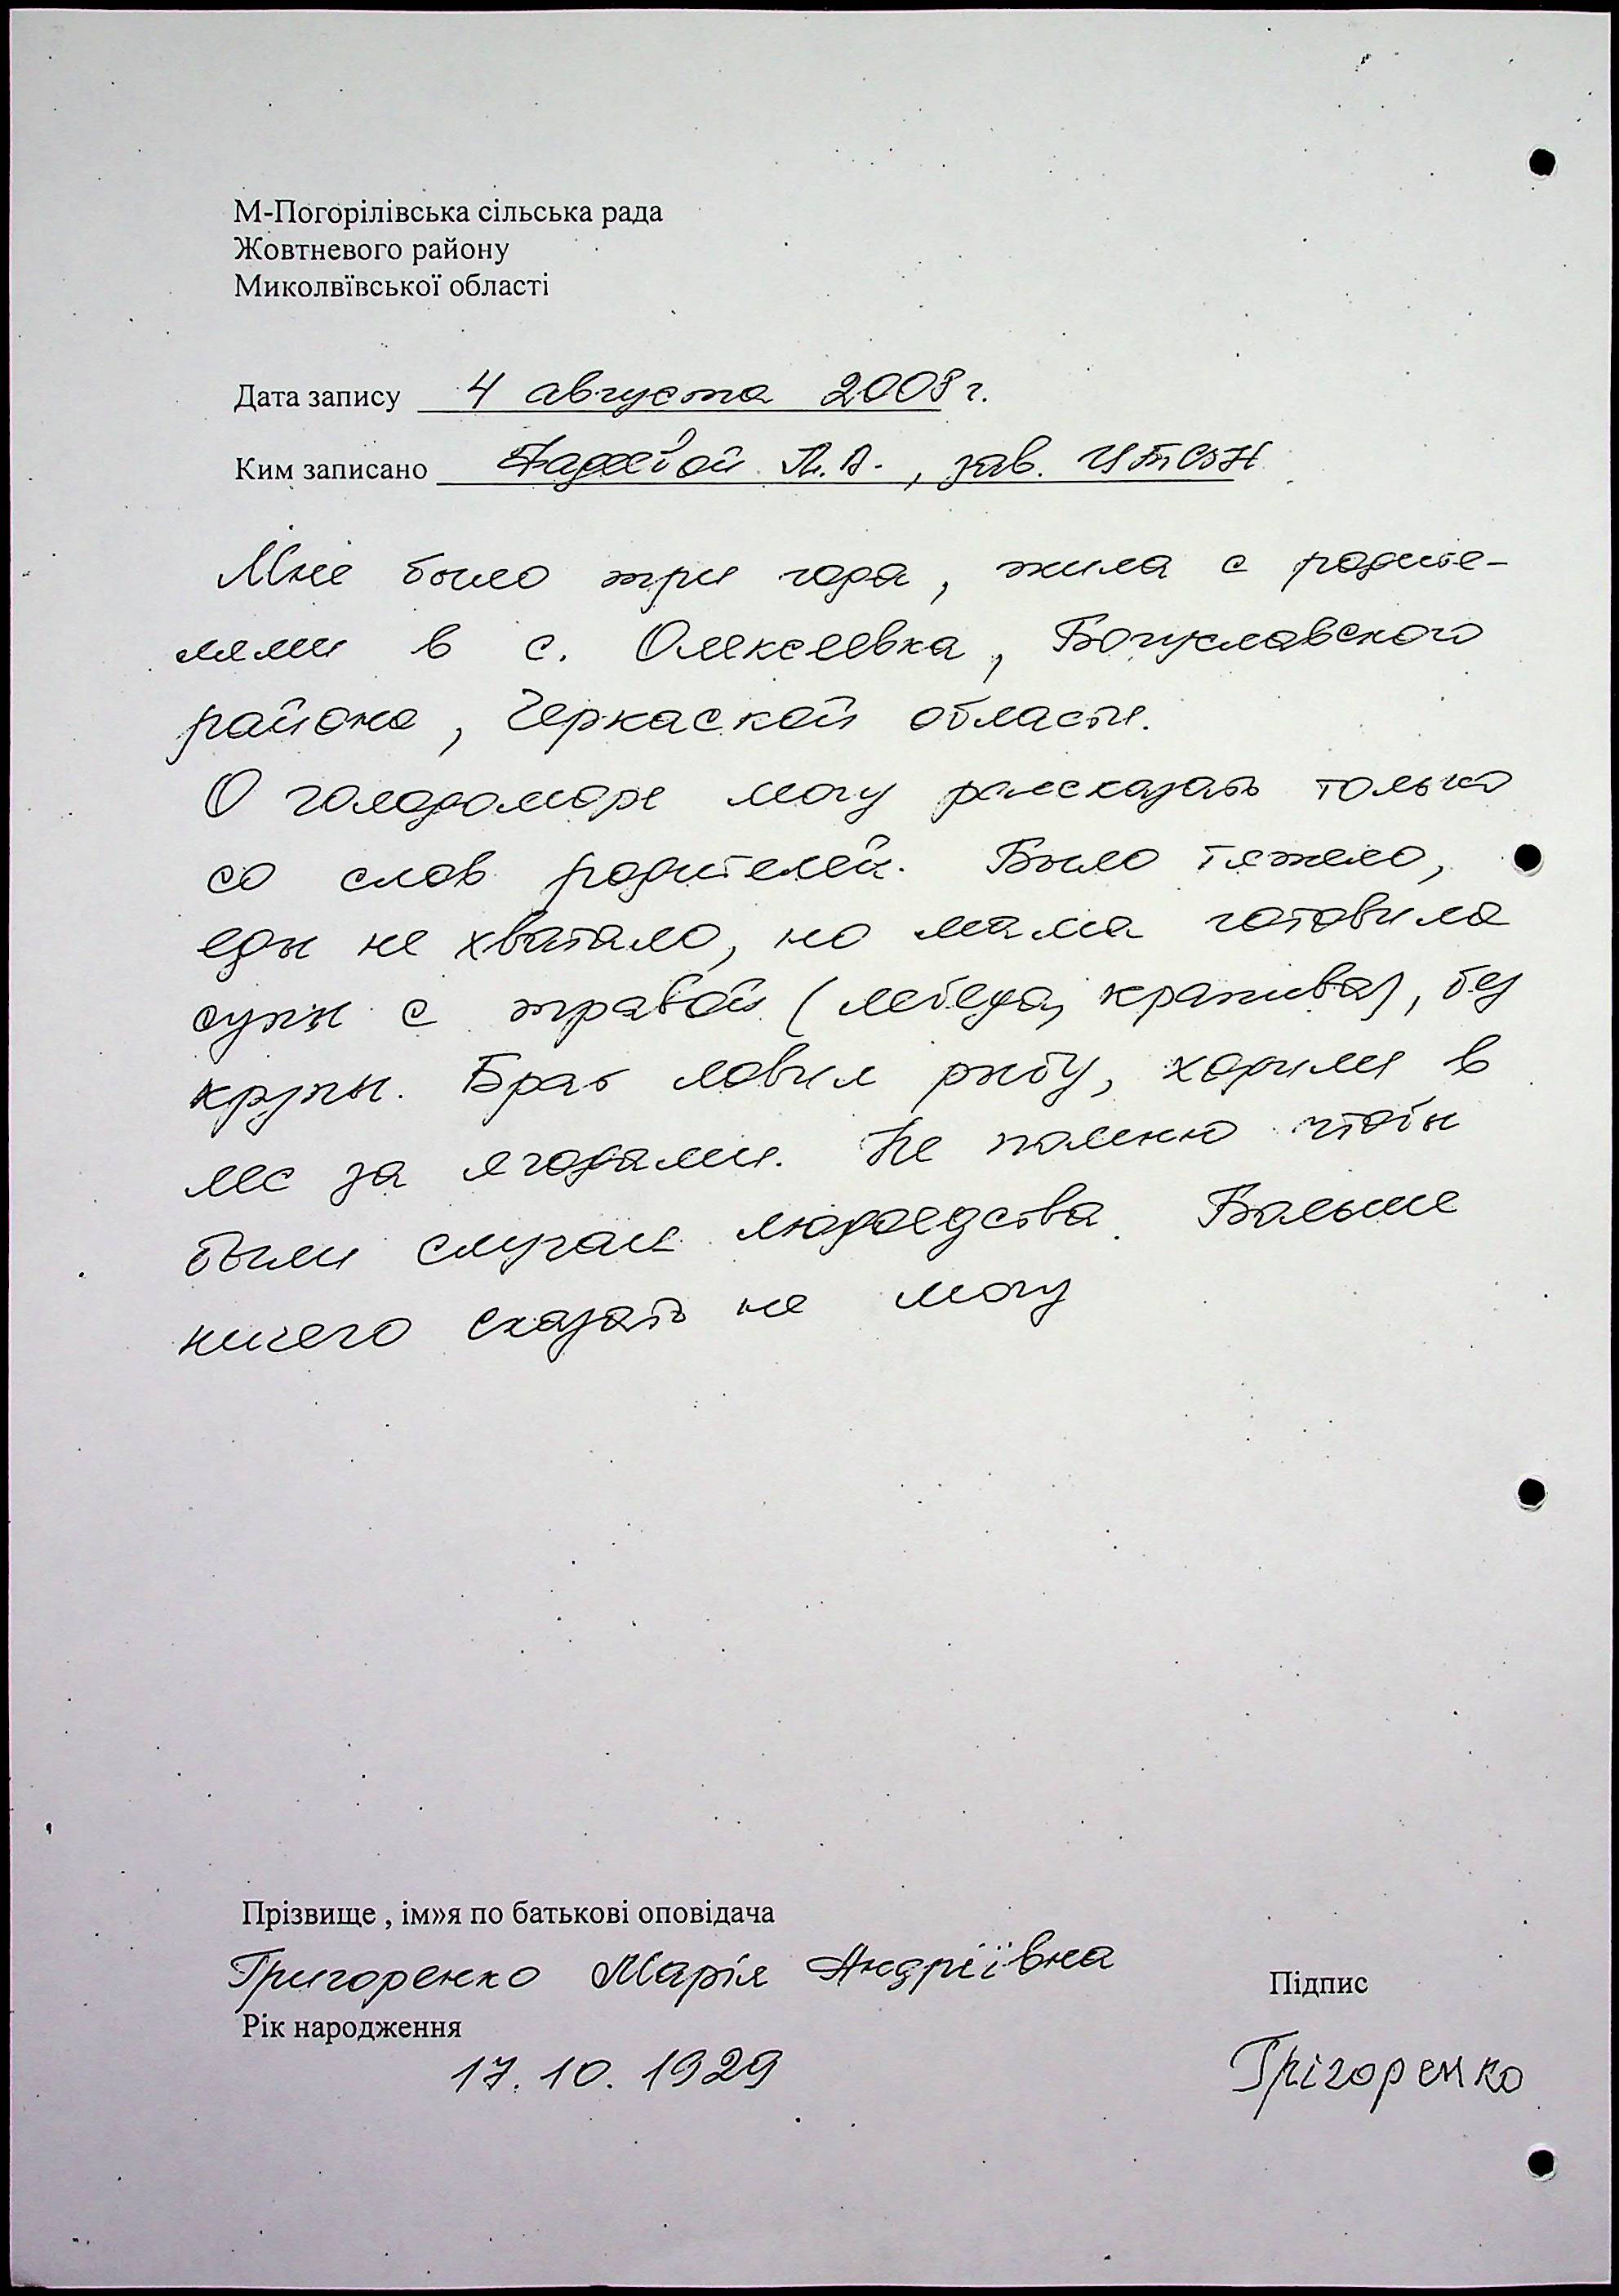 М-Погорілівська сільська рада
Жовтневого району
Миколвївської області
Дата запису 4 августа 2008 г.
Ким записано Фадеевой Л.А., зав. ЦТСОН
Мне было три года, жила с родите-
лями в с. Олексеевка, Богуславского
района, Черкаской области.
О голодоморе могу рассказать только
со слов родителей. Было тяжело,
еды не хватало, но мама готовила
супы с травой (лебеда, крапива), без
крупы. Брат ловил рыбу, ходили в
лес за ягодами. Не помню чтобы
были случаи людоедства. Больше
ничего сказать не могу
Прізвище , ім»я по батькові оповідача
Григоренко Марія Андріївна
Підпис
Рік народження
17.10.1929
Грігоренко